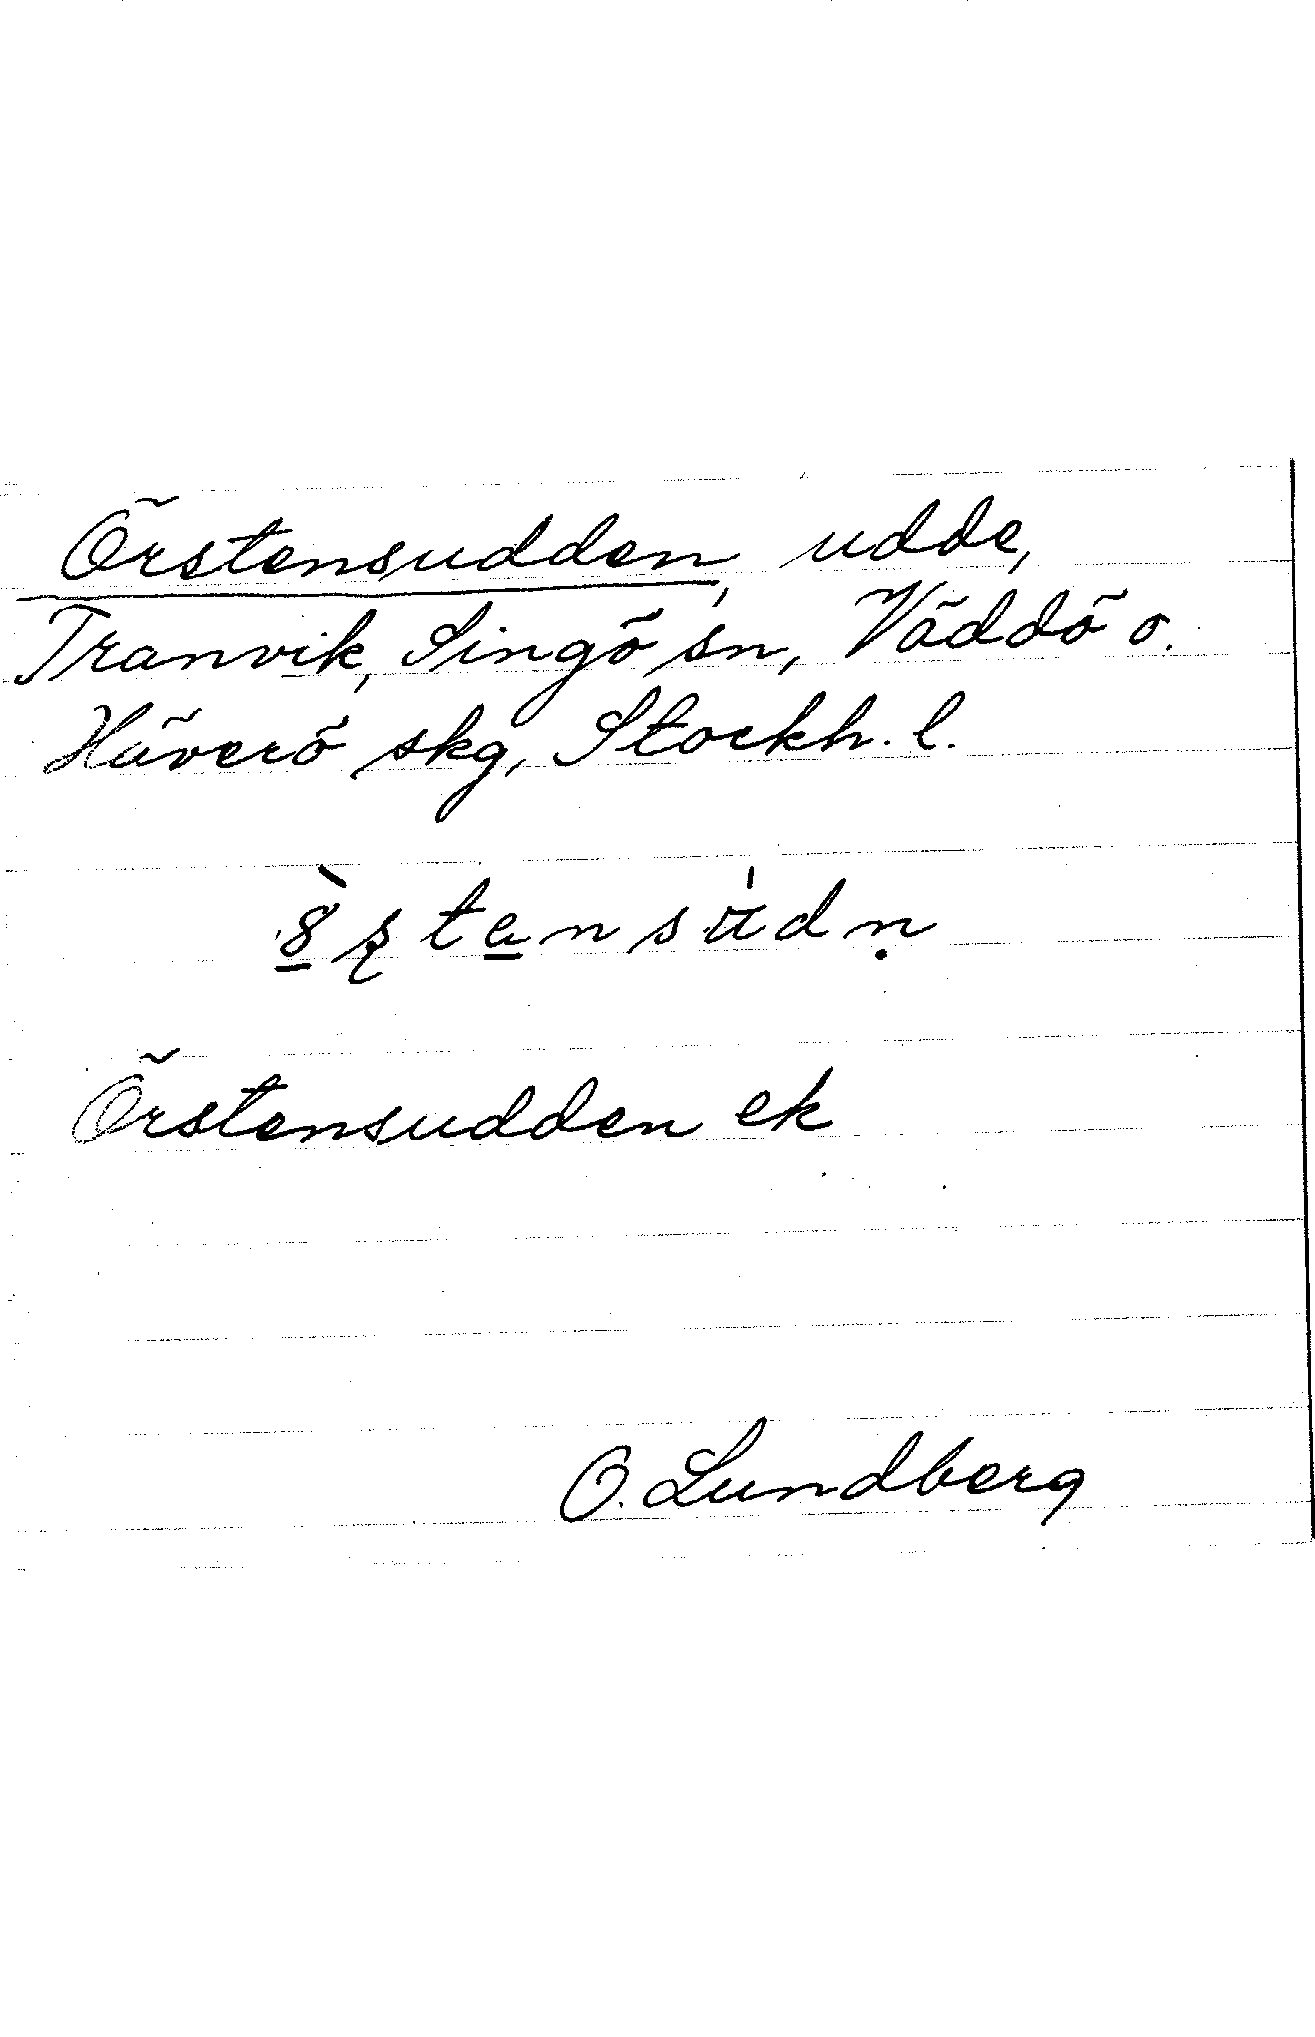 Örstensudden, udde,
Tranvik, Singö sn, Väddö o.
Häverö skg, Stockh. l.
Örstensudden ek
O. Lundberg